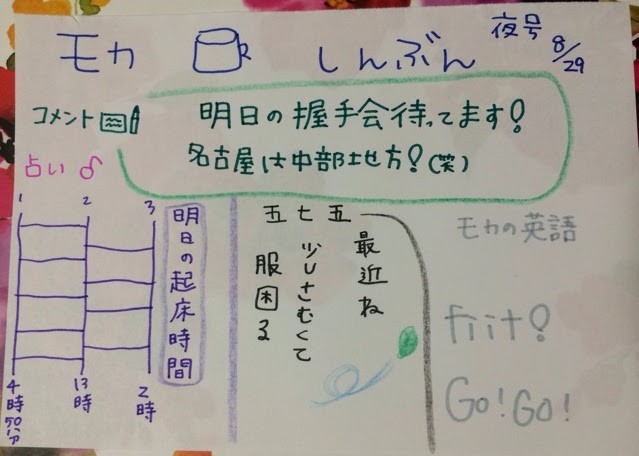 モカ しんぶん 夜号 8/29
コメント
明日の握手会待ってます!
名古屋は中部地方!(笑)
占い
1 2 3
明日の起床時間
4時50分
13時
2時
五七五
最近ね
少しさむくて
服困る
モカの英語
fiit!
Go! Go!